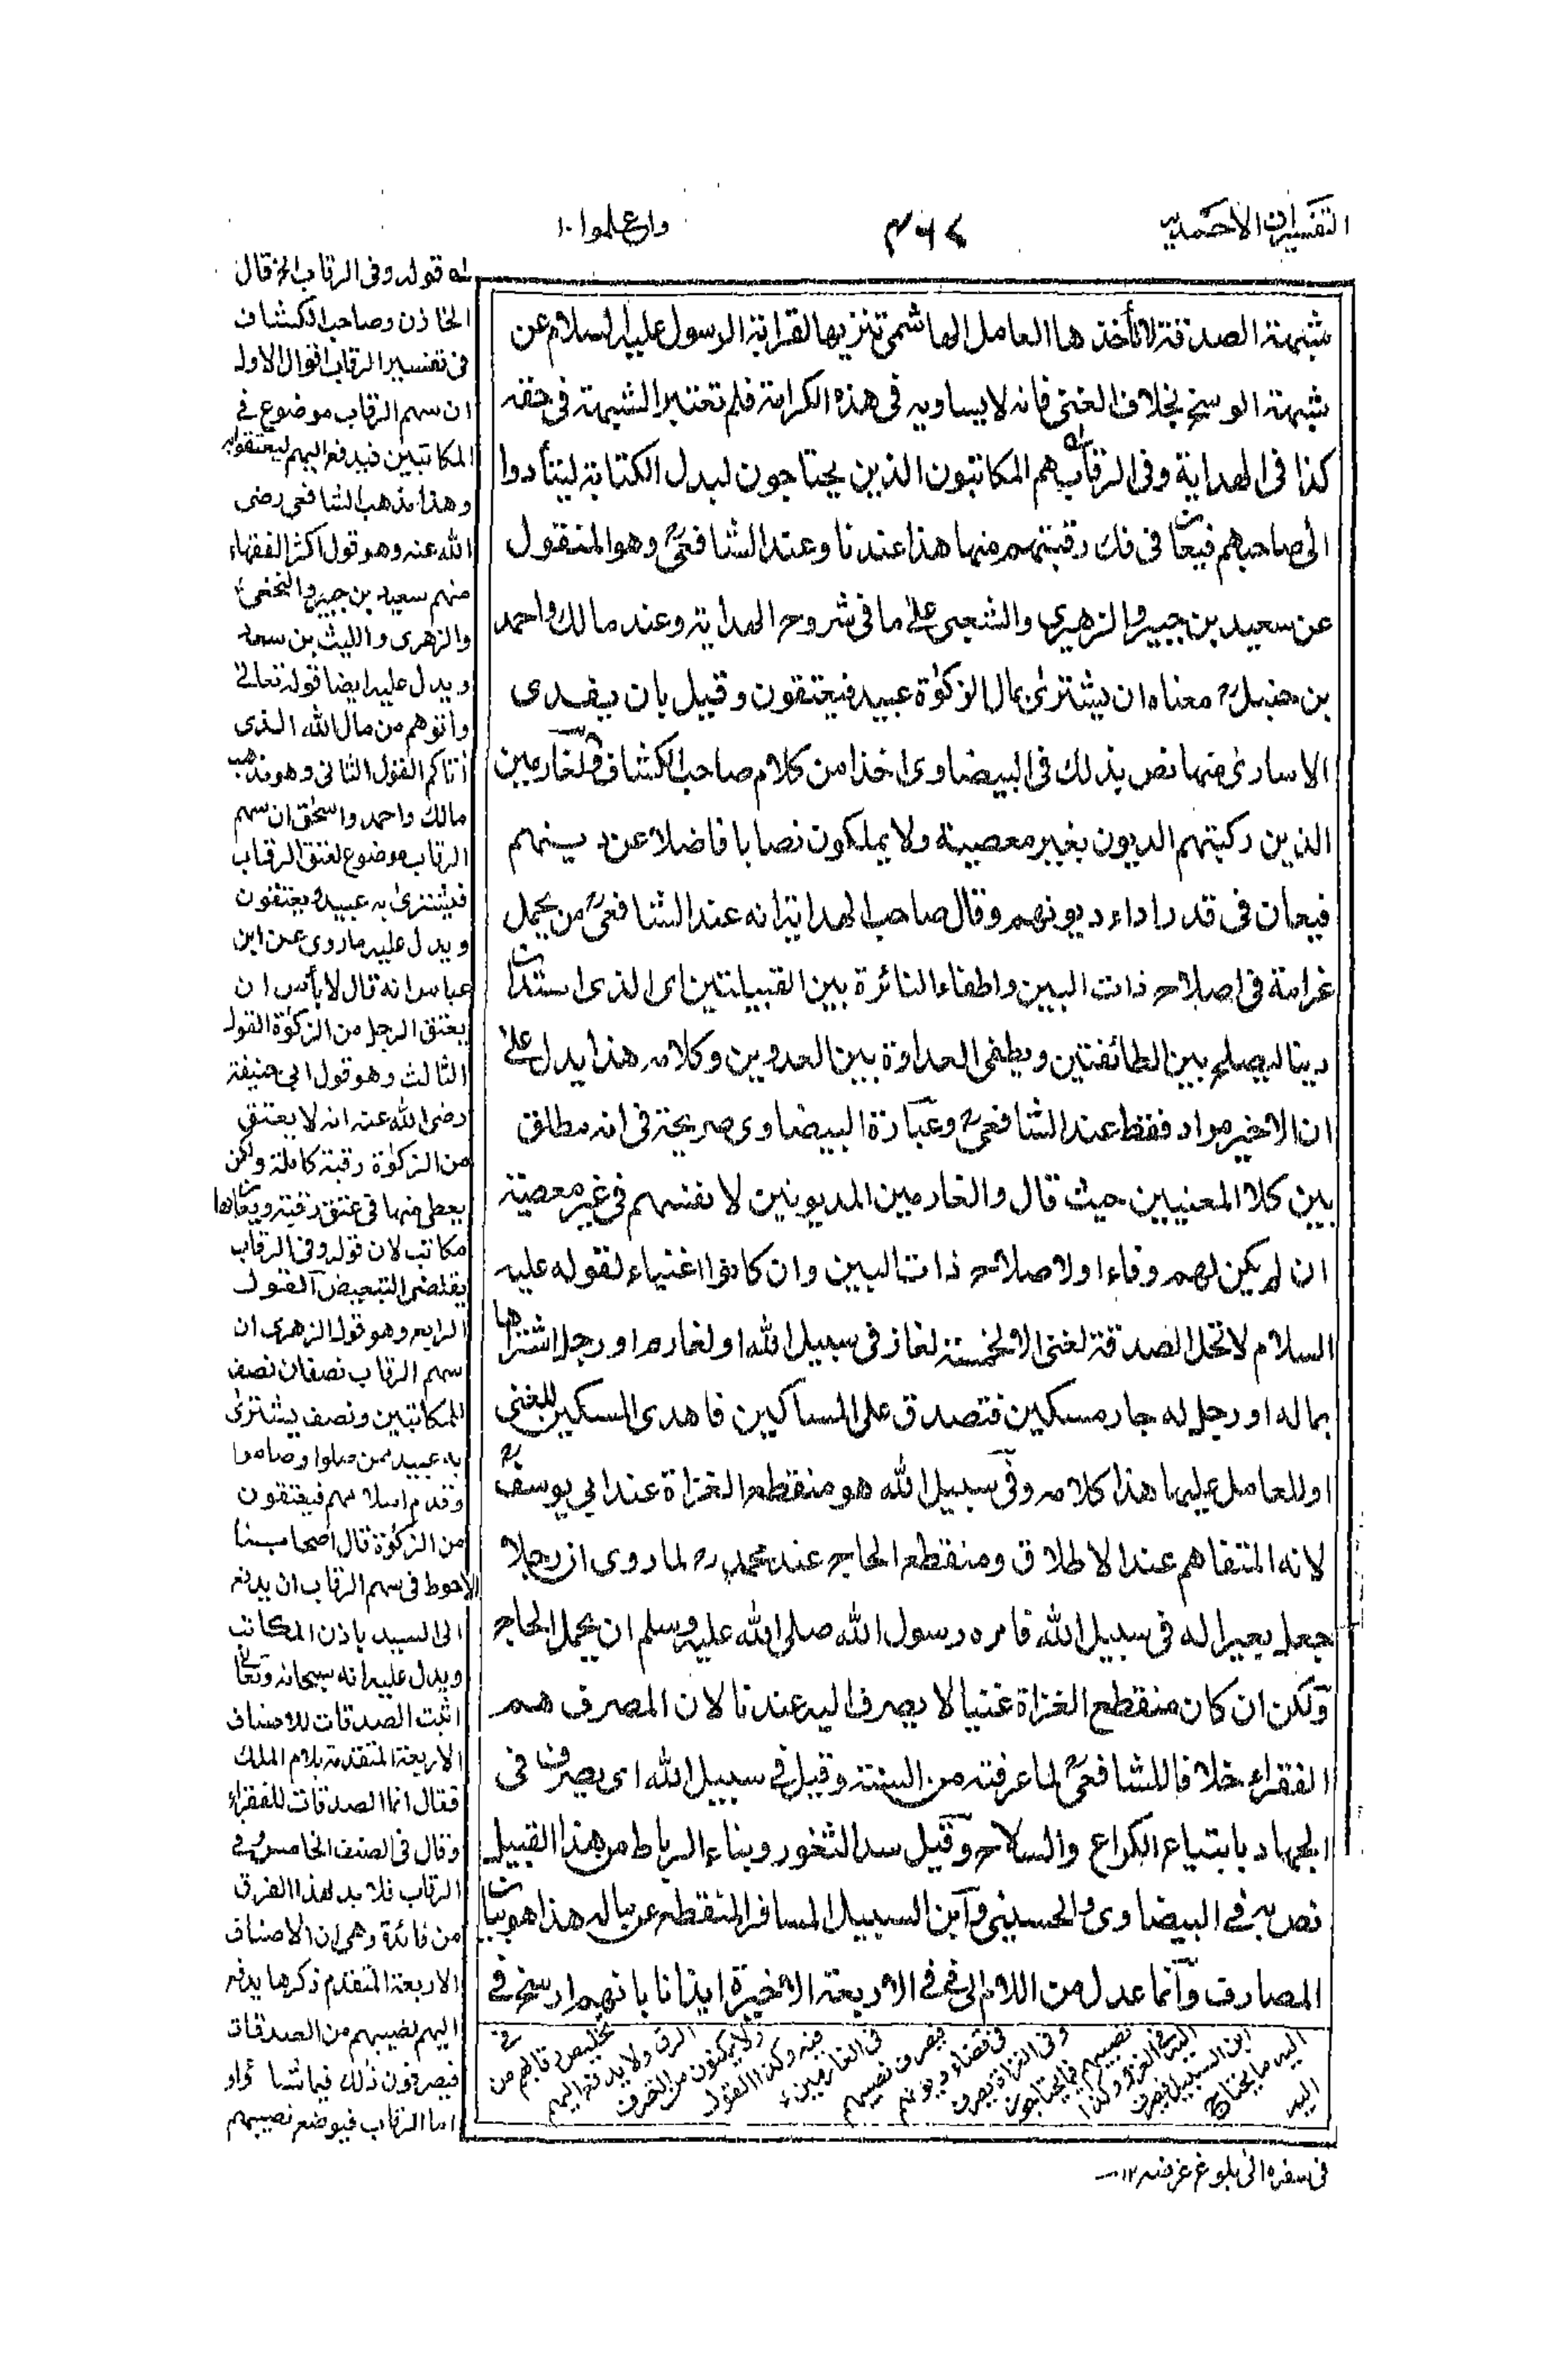 التفسيرات الاحمدية
واعلموا ١٠
شبهة الصدقة لا تأخذها العامل الهاشمى تنزيها لقرابة الرسول عليه السلام عن
شبهة الوسخ بخلاف الغنى فانه لا يساويه فى هذه الكرامة فلم تعتبر الشبهة فى حقه
كذا فى الهداية وفى الرقاب هم المكاتبون الذين يحتاجون لبدل الكتابة ليتأدوا
الى صاحبهم فيعان فى فك رقبتهم منها هذا عندنا وعند الشافعىؒ وهو المنقول
عن سعيد بن جبير والزهرى والشعبى على ما فى شروح الهداية وعند مالك واحمد
بن حنبلؒ معناه ان يشترى بمال الزكوة عبيد فيعتقون وقيل بان يفدى
الاسارى منها نص بذلك فى البيضاوى اخذا من كلام صاحب الكشاف والغارمين
الذين ركبتهم الديون بغير معصية ولا يملكون نصابا فاضلا عن دينهم
فيعان فى قدر اداء ديونهم وقال صاحب الهداية انه عند الشافعىؒ من يحمل
غرامة فى اصلاح ذات البين واطفاء النائرة بين القبيلتين اى الذى استدان
دينا ليصلح بين الطائفتين ويطفى العداوة بين العدوين وكلامه هذا يدل على
ان الاخير مراد فقط عند الشافعىؒ وعبارة البيضاوى صريحة فى انه مطلق
بين كلا المعنيين حيث قال والغارمين المديونين لانفسهم فى غير معصية
ان لم يكن لهم وفاء او لاصلاح ذات البين وان كانوا اغنياء لقوله عليه
السلام لا تحل الصدقة لغنى الا لخمسة لغاز فى سبيل الله او لغارم او رجل اشتراها
بماله او رجل له جار مسكين فتصدق على المساكين فاهدى المسكين للغنى
او للعامل عليها هذا كلامه وفى سبيل الله هو منقطع الغزاة عند ابى يوسفؒ
لانه المتفاهم عند الاطلاق ومنقطع الحاج عند محمدرح لما روى ان رجلا
جعل بعيرا له فى سبيل الله فامره رسول الله صلى الله عليه وسلم ان يحمل الحاج
ولكن ان كان منقطع الغزاة غنيا لا يصرف اليه عندنا لان المصرف هم
الفقراء خلافا للشافعىؒ لما عرفته من السنة وقيل فى سبيل الله اى يصرف فى
الجهاد بابتياع الكراع والسلاح وقيل سد الثغور وبناء الرباط من هذا القبيل
نص به فى البيضاوى والحسينى وابن السبيل المسافر المنقطع عن ماله هذا هو بيان
المصارف وانما عدل من اللام الى فى فى الاربعة الاخيرة ايذانا بانهم ارسخ فى
له قوله وفى الرقاب الخ قال
الخازن وصاحب الكشاف
فى تفسير الرقاب اقوال الاول
ان سهم الرقاب موضوع فى
المكاتبين فيدفع اليهم ليعتقوا به
وهذا مذهب الشافعى رضى
الله عنه وهو قول اكثر الفقهاء
منهم سعيد بن جبير والنخعى
والزهرى والليث بن سعد
ويدل عليه ايضا قوله تعالى
واتوهم من مال الله الذى
اتاكم القول الثانى وهو مذهب
مالك واحمد واسحق ان سهم
الرقاب موضوع لعتق الرقاب
فيشترى به عبيد ويعتقون
ويدل عليه ماروى عن ابن
عباس انه قال لا بأس ان
يعتق الرجل من الزكوة القول
الثالث وهو قول ابى حنيفة
رضى الله عنه انه لا يعتق
من الزكوة رقبة كاملة ولكن
يعطى منها فى عتق رقبة ويعان بها
مكاتب لان قوله وفى الرقاب
يقتضى التبعيض القول
الرابع وهو قول الزهرى ان
سهم الرقاب نصفان نصف
للمكاتبين ونصف يشترى
به عبيد ممن صلوا وصاموا
وقدم اسلامهم فيعتقون
من الزكوة قال اصحابنا
الاحوط فى سهم الرقاب ان يدفع
الى السيد باذن المكاتب
ويدل عليه انه سبحانه وتعالى
اثبت الصدقات للاصناف
الاربعة المتقدمة بلام الملك
فقال انما الصدقات للفقراء
وقال فى الصنف الخامس وفى
الرقاب فلا بد لهذا الفرق
من فائدة وهى ان الاصناف
الاربعة المتقدم ذكرها يدفع
اليهم نصيبهم من الصدقات
فيصرفون ذلك فيما شاءوا و
اما الرقاب فيوضع نصيبهم
فى
تخليص رقابهم من
الرق ولا يدفع اليهم
ولا يمكنون من التصرف
فيه وكذا القول
فى الغارمين
فيصرف نصيبهم
فى قضاء ديونهم
وفى الغزاة يصرف
نصيبهم فيما يحتاجون
اليه فى الغزو وكذا
ابن السبيل فيصرف
اليه ما يحتاج
اليه
فى سفره الى بلوغ غرضه ١٢